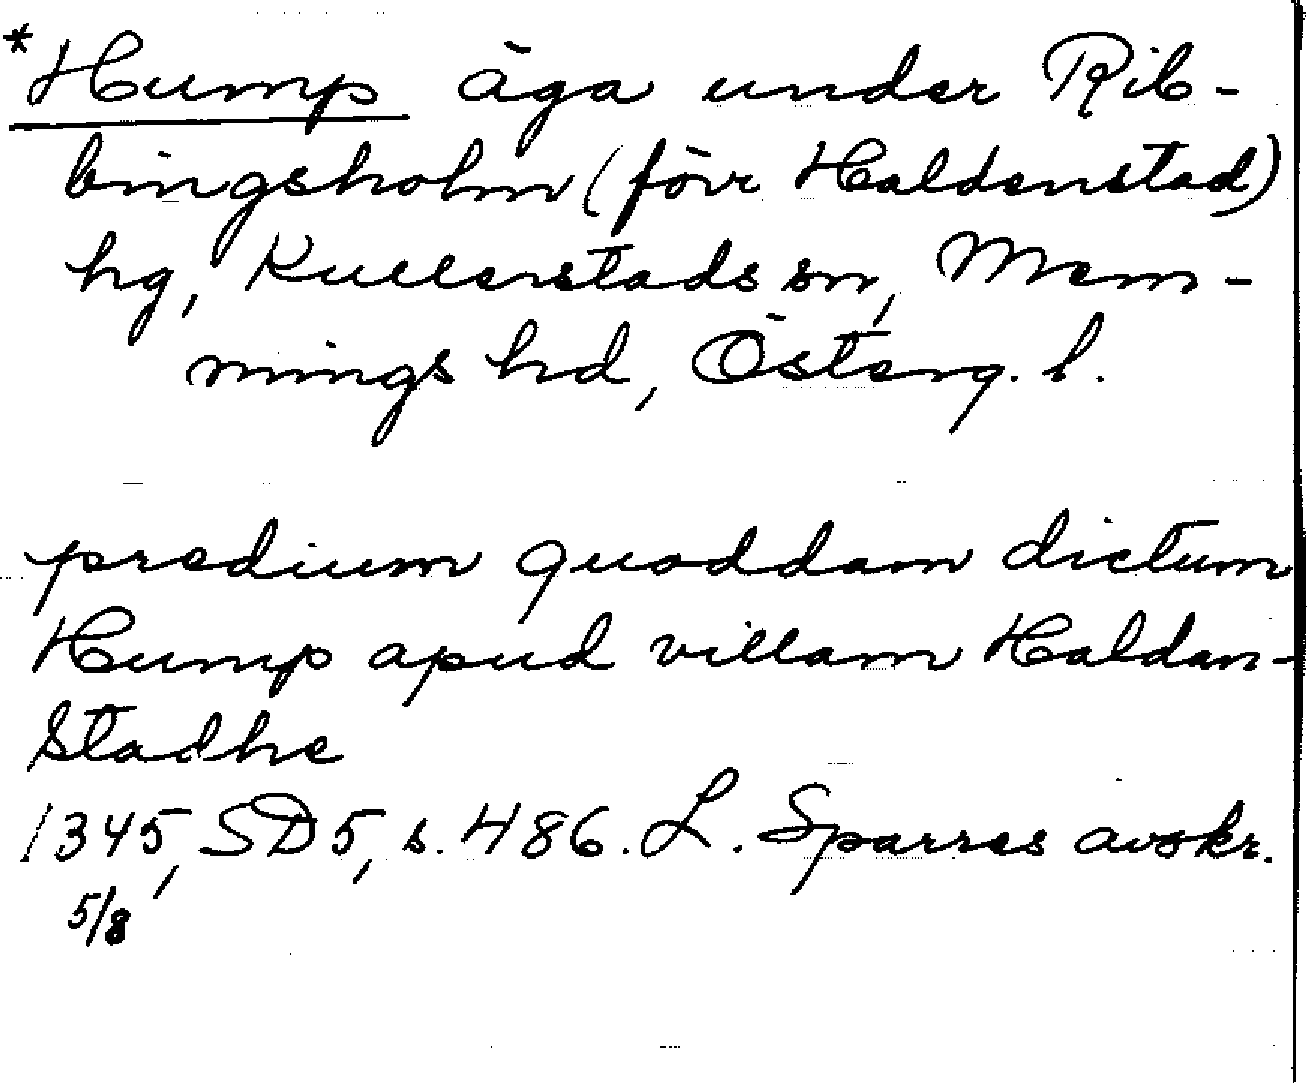 *Hump äga under Rib-
bingsholm (förr Haldenstad)
hg, Kullerstads sn, Mem-
mings hd, Österg. l.
predium quoddam dictum
Hump apud villam Haldan-
stadhe
1345, SD 5, s. 486. L. Sparres avskr.
5/8